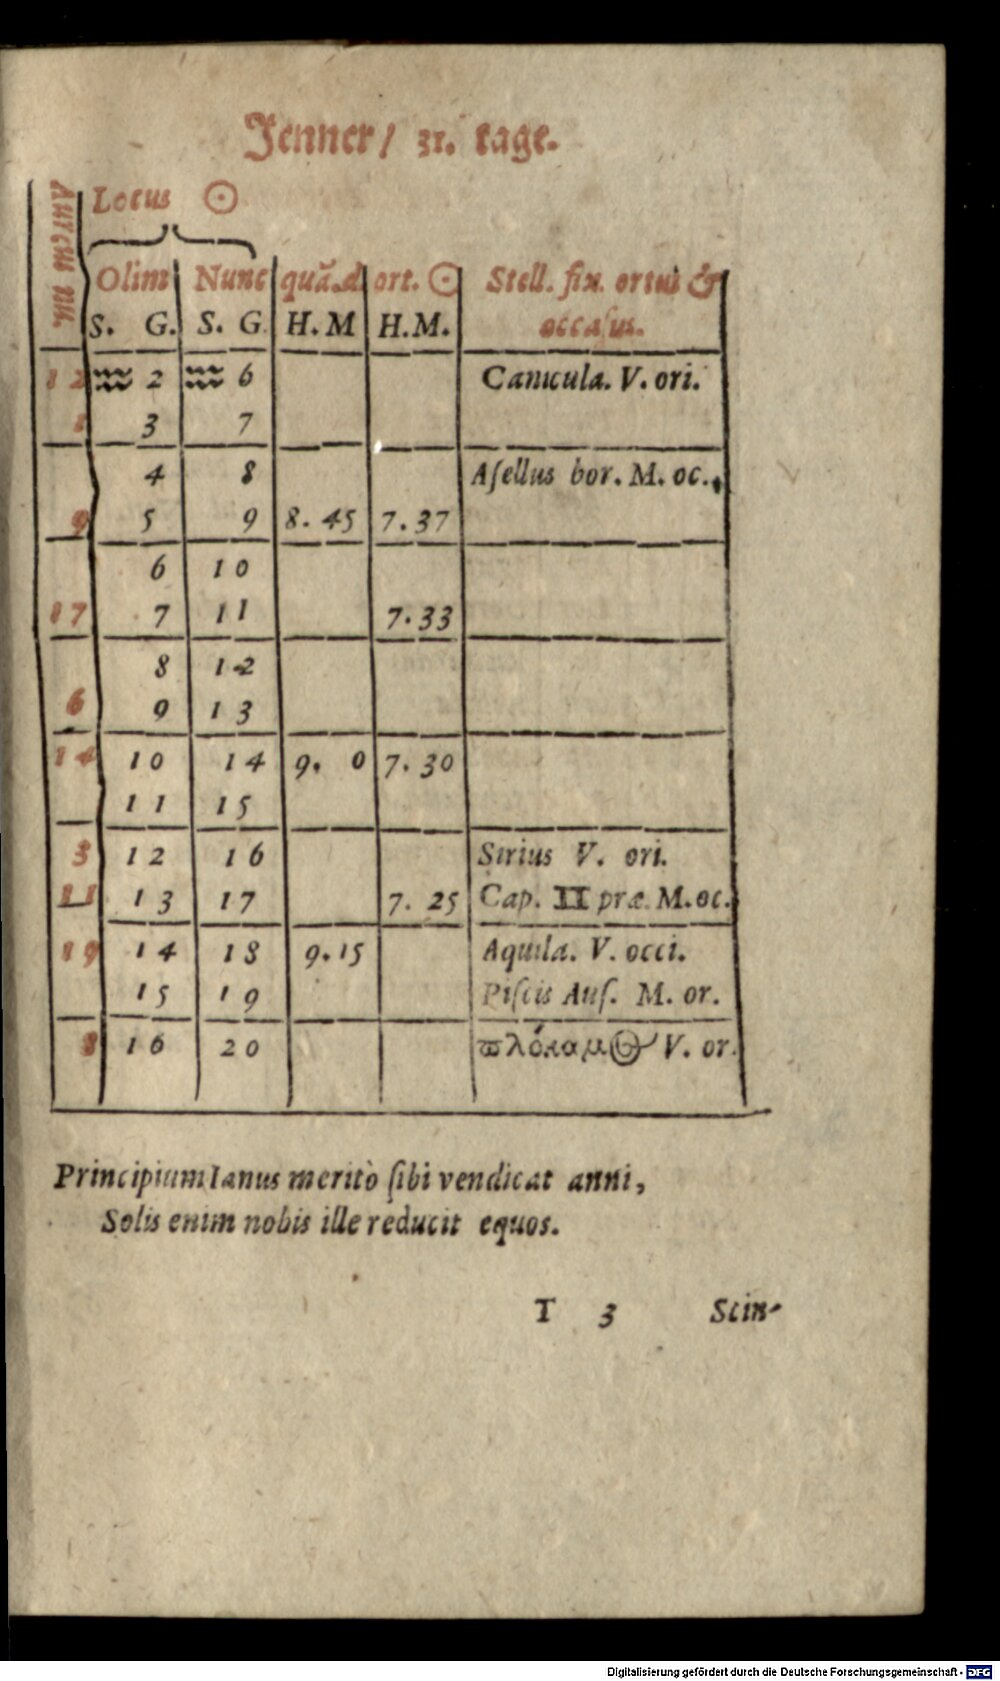 Jenner/ 31. tage.
Aureus nu.
Locus ☉
Olim Nunc quā.d ort. ☉ Stell. fix. ortus &
S. G. S. G. H. M H.M. occasus.
12 ♒ 2 ♒ 6 Canicula. V. ori.
1 3 7
4 8 Aſellus bor. M. oc.
9 5 9 8. 45 7. 37
6 10
17 7 11 7. 33
8 12
6 9 13
14 10 14 9. 0 7. 30
11 15
3 12 16 Sirius V. ori.
11 13 17 7. 25 Cap. ♊ præ. M. oc.
19 14 18 9. 15 Aquila. V. occi.
15 19 Piſcis Auſ. M. or.
8 16 20 ϖλόκαμ V. or.
Principium Ianus meritò ſibi vendicat anni,
Solis enim nobis ille reducit equos.
T 3 Scin-
Digitalisierung gefördert durch die Deutsche Forschungsgemeinschaft - DFG